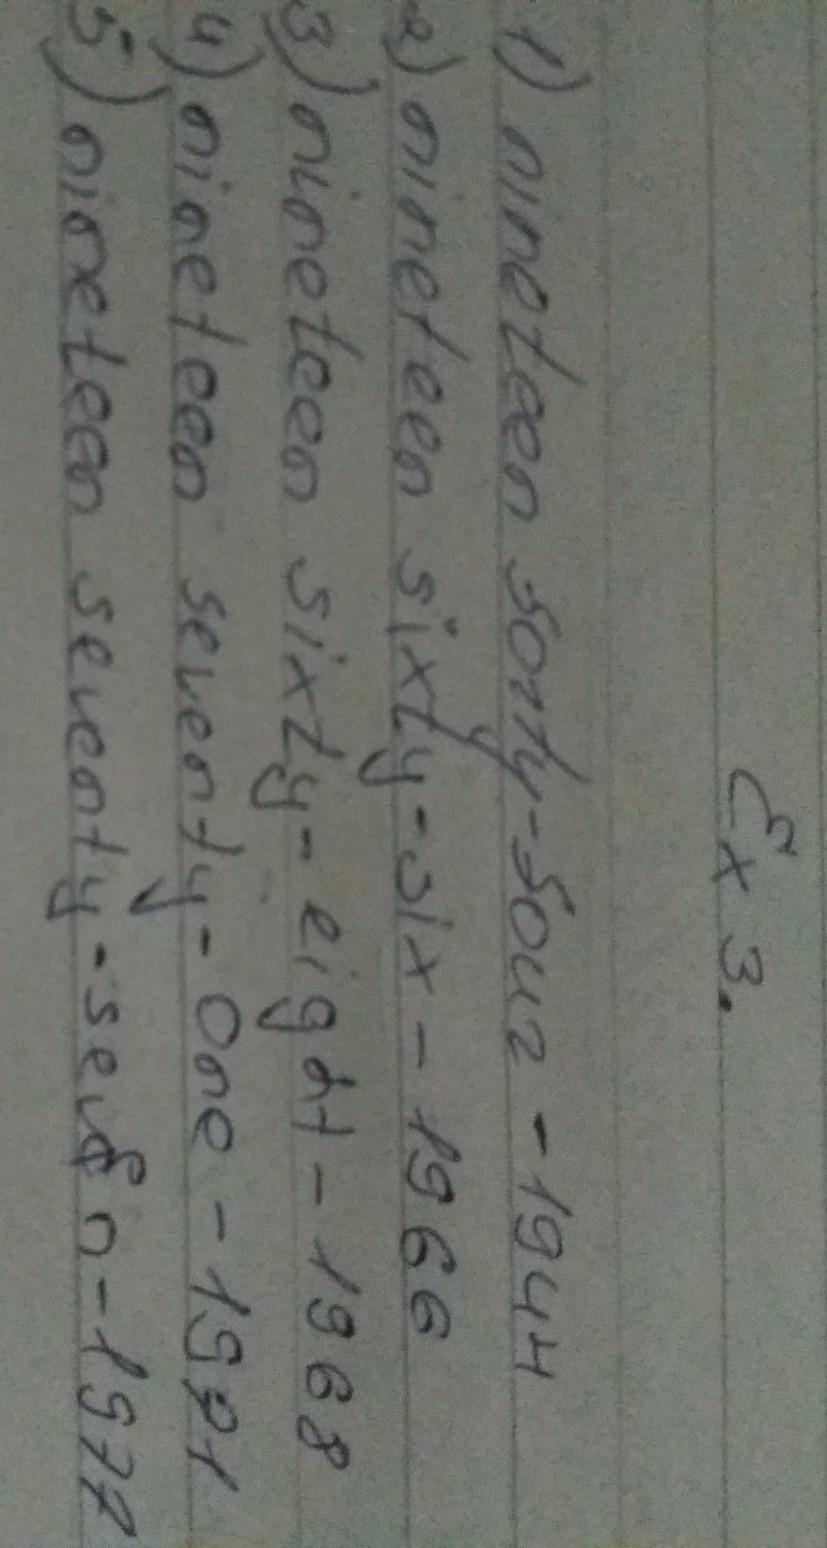 Ex 3.
1) nineteen forty-four - 1944
2) nineteen sixty-six - 1966
3) nineteen sixty-eight - 1968
4) nineteen seventy-One - 1971
5) nineteen seventy-seven - 1977